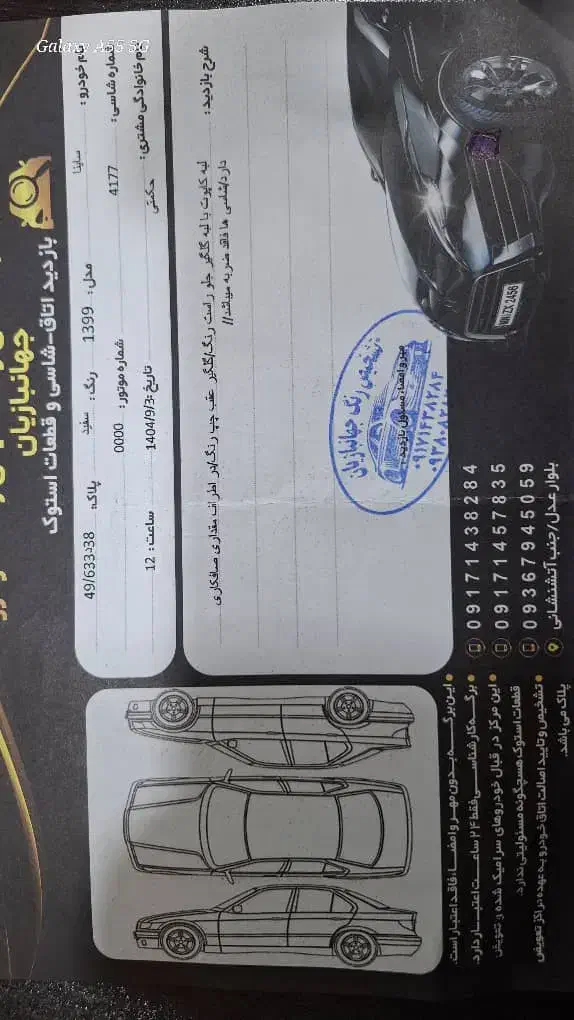 Galaxy A55 5G
جهانبازیان
بازدید اتاق-شاسی و قطعات استوک
نام خودرو : ساینا مدل : 1399 رنگ : سفید پلاک: 49/633د38
شماره شاسی : 4177 شماره موتور : 0000
نام خانوادگی مشتری : حکمتی تاریخ :1404/9/3 ساعت : 12
شرح بازدید :
لبه کاپوت با لبه گلگیر جلو راست رنگ/گلگیر عقب چپ رنگ/در اطراف مقداری صافکاری
دارد/شاسی ها فاقد ضربه میباشد//
WH·ZX 2456
تشخیص رنگ جهانبازیان
مهر و امضاء مسئول بازدید :
۰۹۱۷۱۴۳۸۲۸۴
09171438284
09171457835
09367945059
بلوار عدل/جنب آتشنشانی
این برگه بدون مهر و امضاء، فاقد اعتبار است.
برگه کارشناسی فقط ۲۴ ساعت اعتبار دارد.
این مرکز در قبال خودروهای سرامیک شده و تعویض
قطعات استوک هیچگونه مسئولیتی ندارد.
تشخیص و تایید اصالت اتاق خودرو به عهده مراکز تعویض
پلاک می باشد.